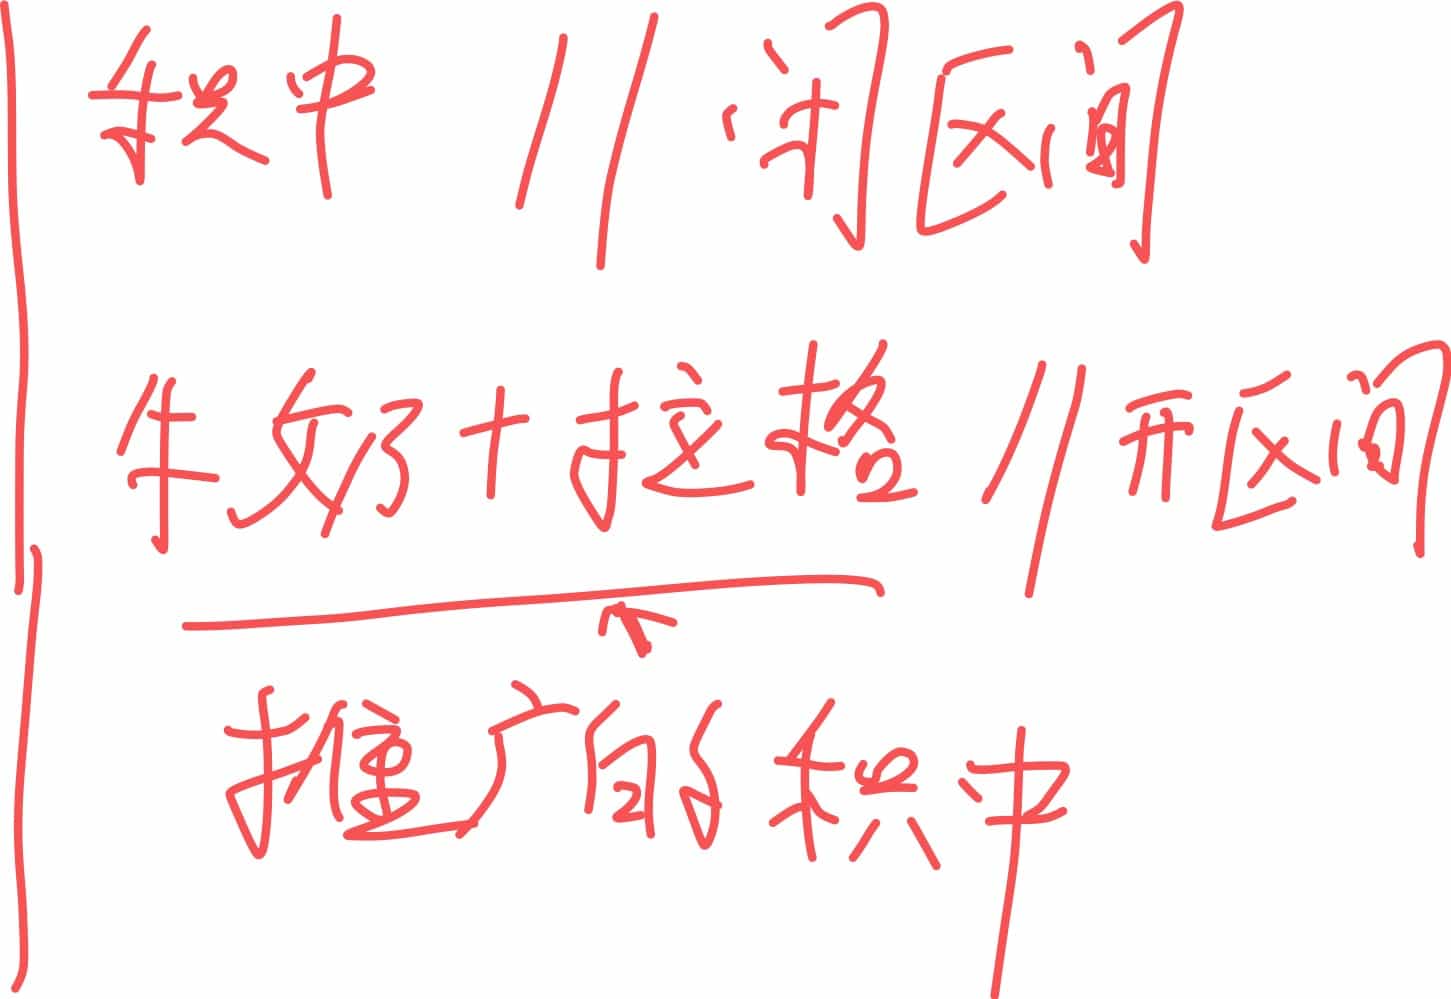 积中 // 闭区间
牛奶+拉格 // 开区间
推广的积中